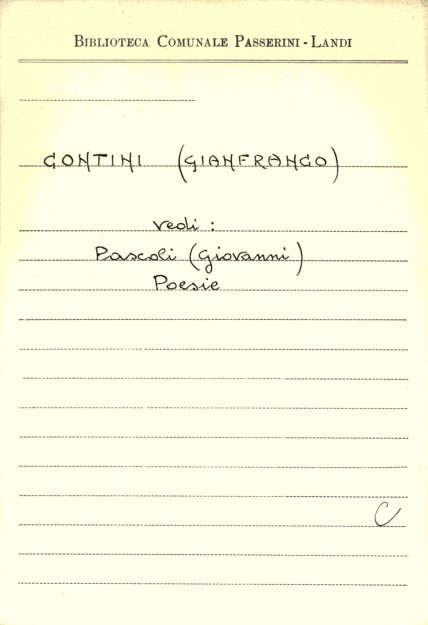 BIBLIOTECA COMUNALE PASSERINI - LANDI
CONTINI (GIANFRANCO)
vedi :
Pascoli (Giovanni)
Poesie
C